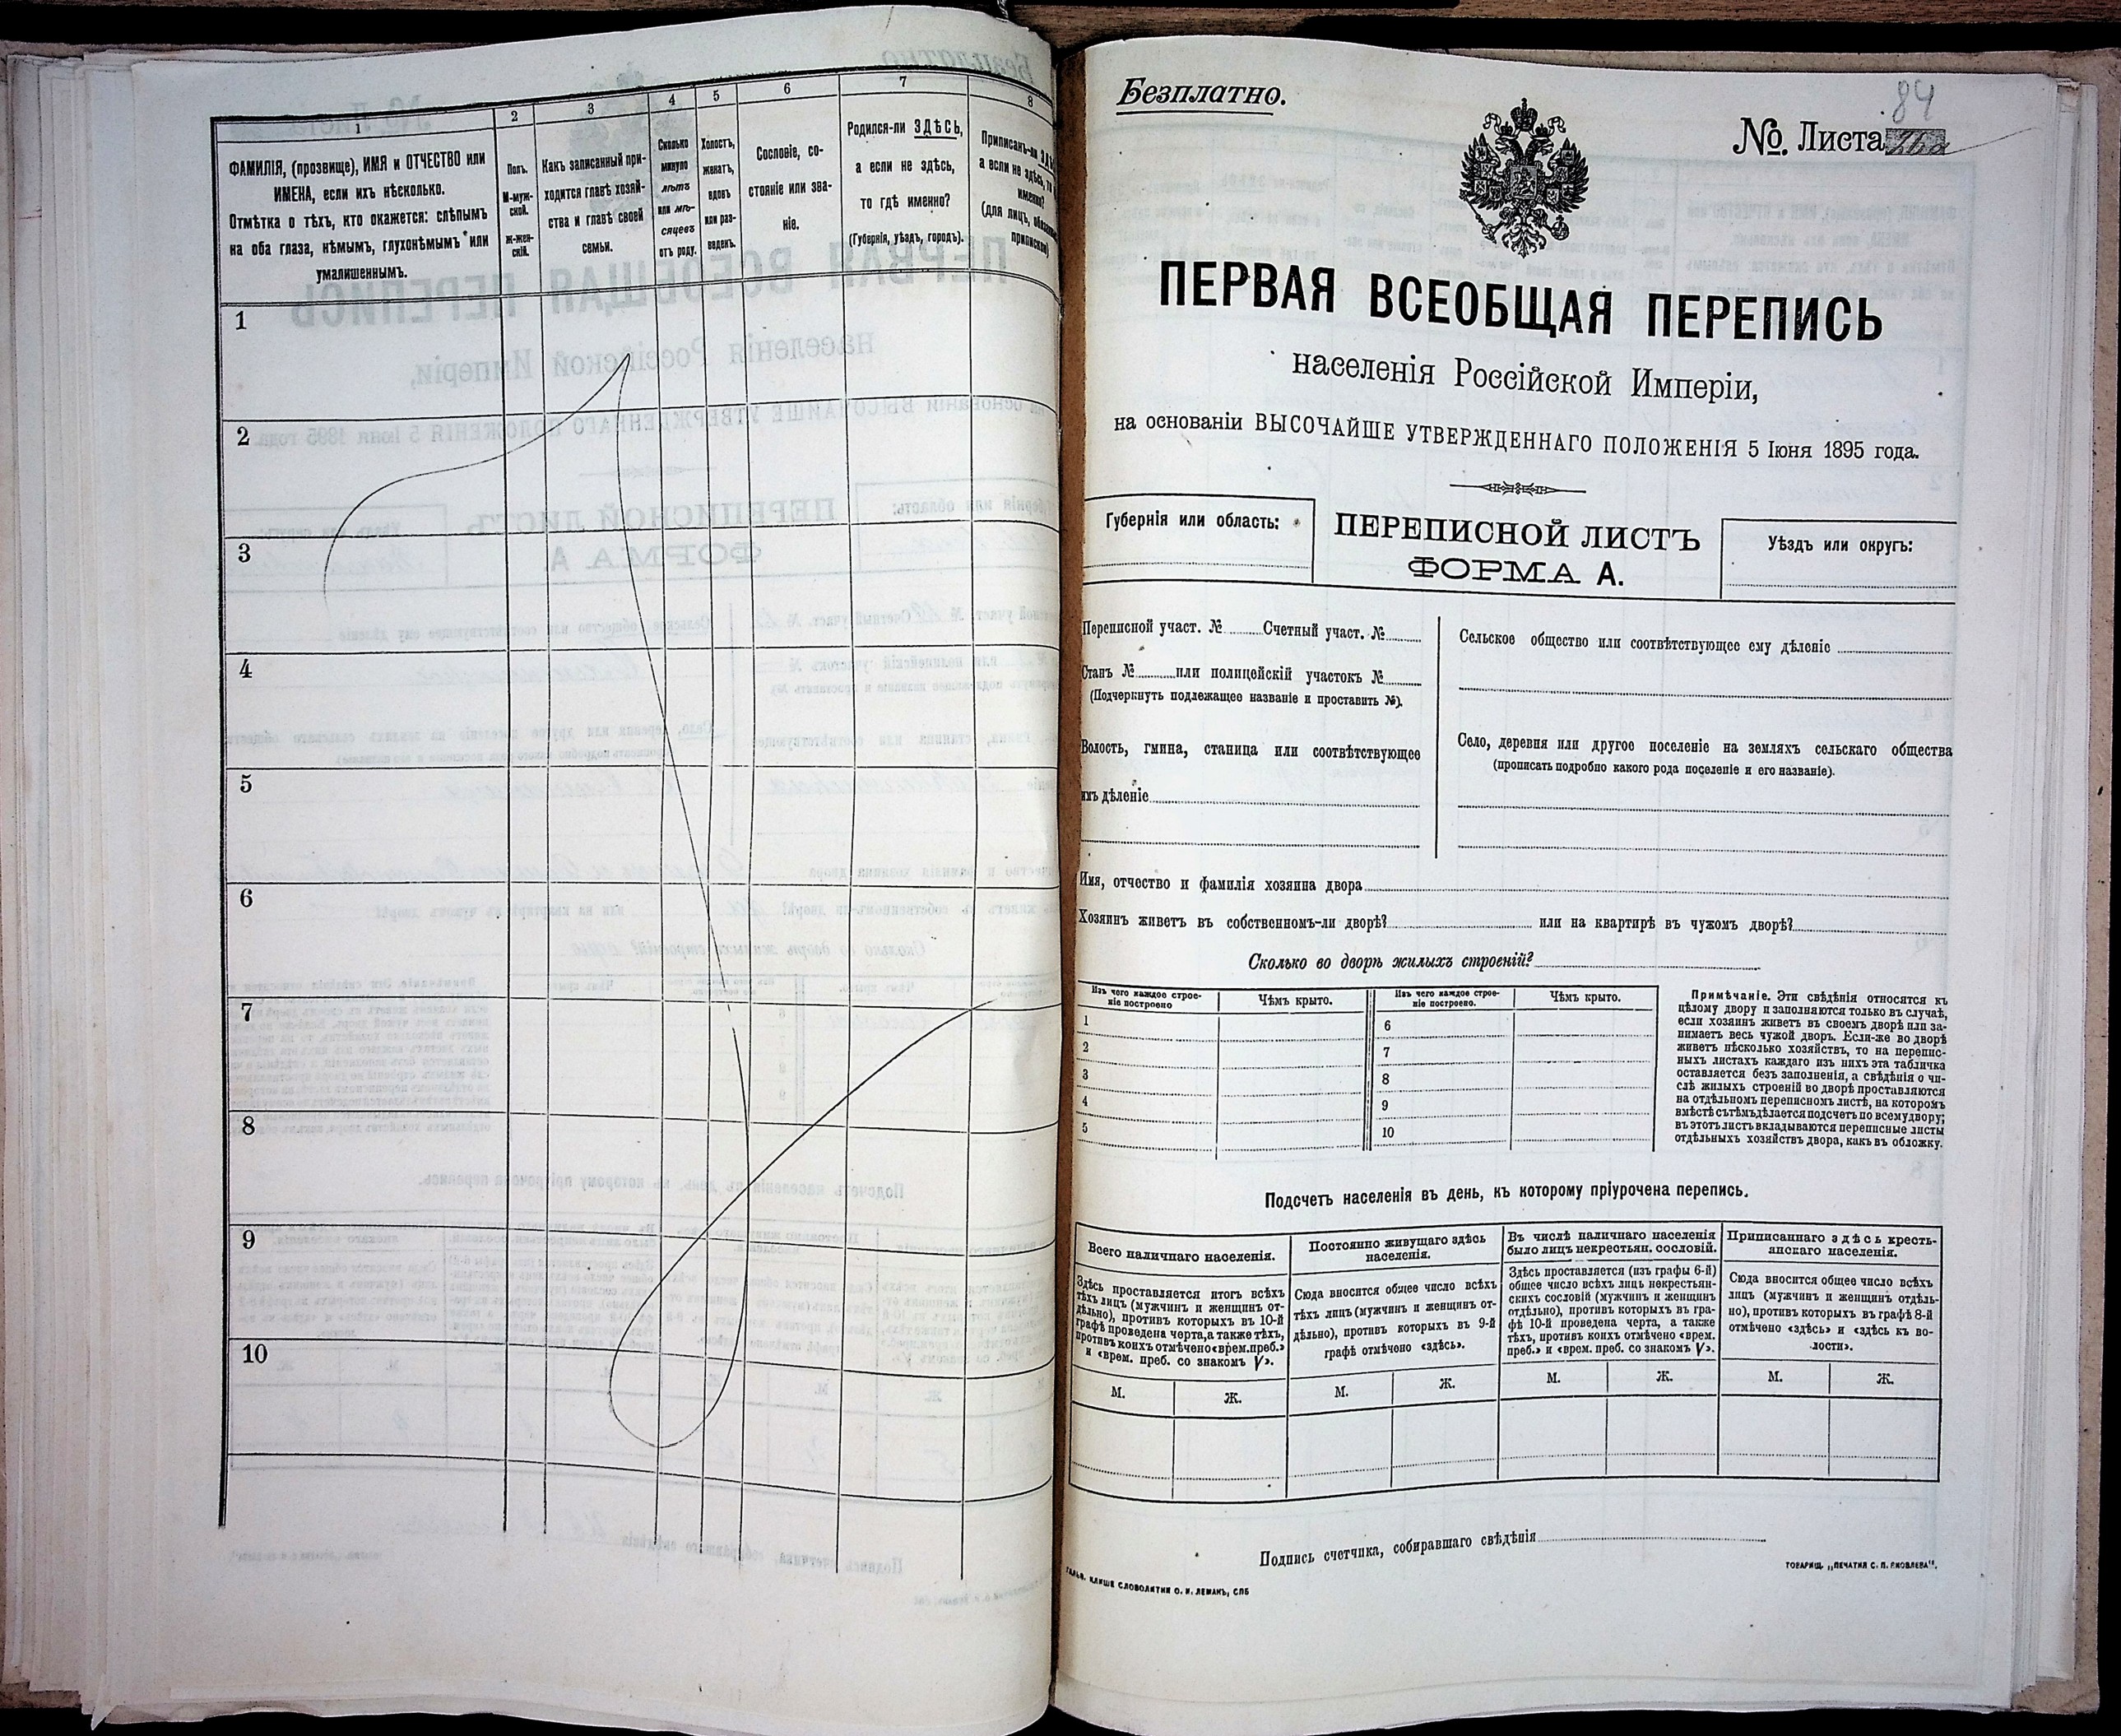 1
2
3
4
5
6
7
8
ФАМИЛІЯ, (прозвище), ИМЯ и ОТЧЕСТВО или
ИМЕНА, если ихъ нѣсколько.
Отмѣтка о тѣхъ, кто окажется: слѣпымъ
на оба глаза, нѣмымъ, глухонѣмымъ или
умалишеннымъ.
Полъ.
М-муж-
ской.
ж-жен-
скій.
Какъ записанный при-
ходится главѣ хозяй-
ства и главѣ своей
семьи.
Сколько
минуло
лѣтъ
или мѣ-
сяцевъ
отъ роду.
Холостъ,
женатъ,
вдовъ
или раз-
веденъ.
Сословіе, со-
стояніе или зва-
ніе.
Родился-ли ЗДѢСЬ,
а если не здѣсь,
то гдѣ именно?
(Губернія, уѣздъ, городъ).
Приписанъ-ли
а если не здѣсь,
именно?
(для лицъ,
приписки)
1
2
3
4
5
6
7
8
9
10
Безплатно.
84
№ Листа
ПЕРВАЯ ВСЕОБЩАЯ ПЕРЕПИСЬ
населенія Россійской Имперіи,
на основаніи ВЫСОЧАЙШЕ УТВЕРЖДЕННАГО ПОЛОЖЕНІЯ 5 Іюня 1895 года.
Губернія или область:
ПЕРЕПИСНОЙ ЛИСТЪ
ФОРМА А.
Уѣздъ или округъ:
Переписной участ. № Счетный участ. №
Станъ № или полицейскій участокъ №
(Подчеркнуть подлежащее названіе и проставить №).
Волость, гмина, станица или соотвѣтствующее
имъ дѣленіе
Сельское общество или соотвѣтствующее ему дѣленіе
Село, деревня или другое поселеніе на земляхъ сельскаго общества
(прописать подробно какого рода поселеніе и его названіе).
Имя, отчество и фамилія хозяина двора
Хозяинъ живетъ въ собственномъ-ли дворѣ? или на квартирѣ въ чужомъ дворѣ?
Сколько во дворѣ жилыхъ строеній?
Изъ чего каждое строе-
ніе построено
Чѣмъ крыто.
Изъ чего каждое строе-
ніе построено.
Чѣмъ крыто.
1
2
3
4
5
6
7
8
9
10
Примѣчаніе. Эти свѣдѣнія относятся къ
цѣлому двору и заполняются только въ случаѣ,
если хозяинъ живетъ въ своемъ дворѣ или за-
нимаетъ весь чужой дворъ. Если-же во дворѣ
живетъ нѣсколько хозяйствъ, то на перепис-
ныхъ листахъ каждаго изъ нихъ эта табличка
оставляется безъ заполненія, а свѣдѣнія о чи-
слѣ жилыхъ строеній во дворѣ проставляются
на отдѣльномъ переписномъ листѣ, на которомъ
вмѣстѣ съ тѣмъ дѣлается подсчетъ по всему двору;
въ этотъ листъ вкладываются переписные листы
отдѣльныхъ хозяйствъ двора, какъ въ обложку.
Подсчетъ населенія въ день, къ которому пріурочена перепись.
Всего наличнаго населенія.
Здѣсь проставляется итогъ всѣхъ
тѣхъ лицъ (мужчинъ и женщинъ от-
дѣльно), противъ которыхъ въ 10-й
графѣ проведена черта, а также тѣхъ,
противъ коихъ отмѣчено «врем.преб.»
и «врем. преб. со знакомъ V».
М.
Ж.
Постоянно живущаго здѣсь
населенія.
Сюда вносится общее число всѣхъ
тѣхъ лицъ (мужчинъ и женщинъ от-
дѣльно), противъ которыхъ въ 9-й
графѣ отмѣчено «здѣсь».
М.
Ж.
Въ числѣ наличнаго населенія
было лицъ некрестьян. сословій.
Здѣсь проставляется (изъ графы 6-й)
общее число всѣхъ лицъ некрестьян-
скихъ сословій (мужчинъ и женщинъ
отдѣльно), противъ которыхъ въ гра-
фѣ 10-й проведена черта, а также
тѣхъ, противъ коихъ отмѣчено «врем.
преб.» и «врем. преб. со знакомъ V».
М.
Ж.
Приписаннаго здѣсь кресть-
янскаго населенія.
Сюда вносится общее число всѣхъ
лицъ (мужчинъ и женщинъ отдѣль-
но), противъ которыхъ въ графѣ 8-й
отмѣчено «здѣсь» и «здѣсь къ во-
лости».
М.
Ж.
Подпись счетчика, собиравшаго свѣдѣнія
КЛИШЕ СЛОВОЛИТНИ О. И. ЛЕМАНЪ, СПБ
ТОВАРИЩ. „ПЕЧАТНЯ С. П. ЯКОВЛЕВА".